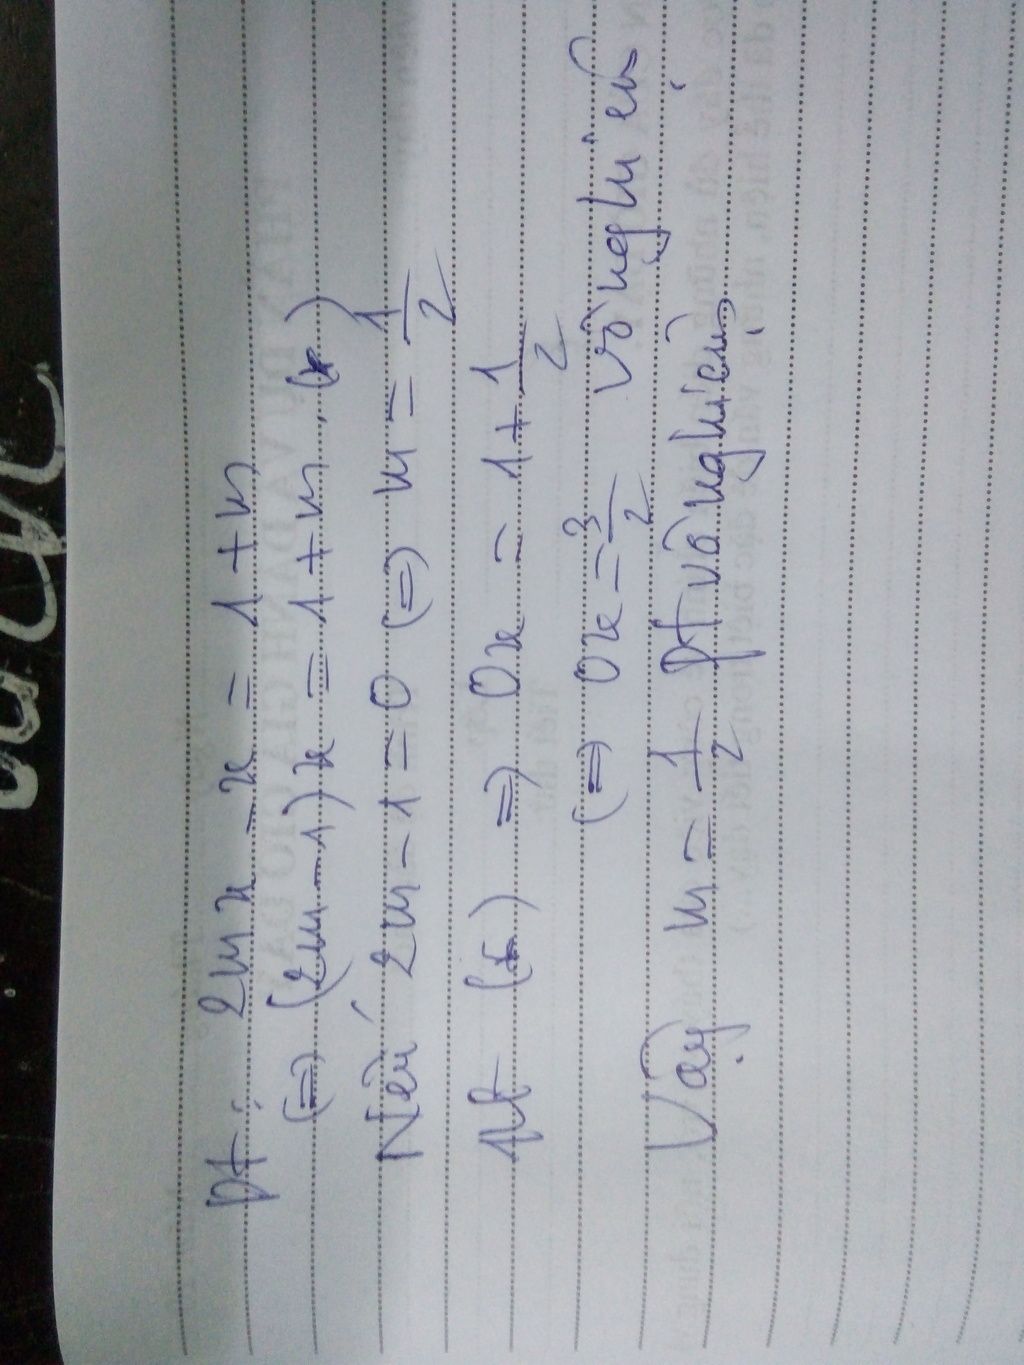 pt: 2mx - x = 1 + m
(=) (2m - 1)x = 1 + m (*)
Nếu 2m - 1 = 0 (=) m = 1/2
pt (*) =) 0x = 1 + 1/2
(=) 0x = 3/2 vô nghiệm
Vậy m = 1/2 pt vô nghiệm